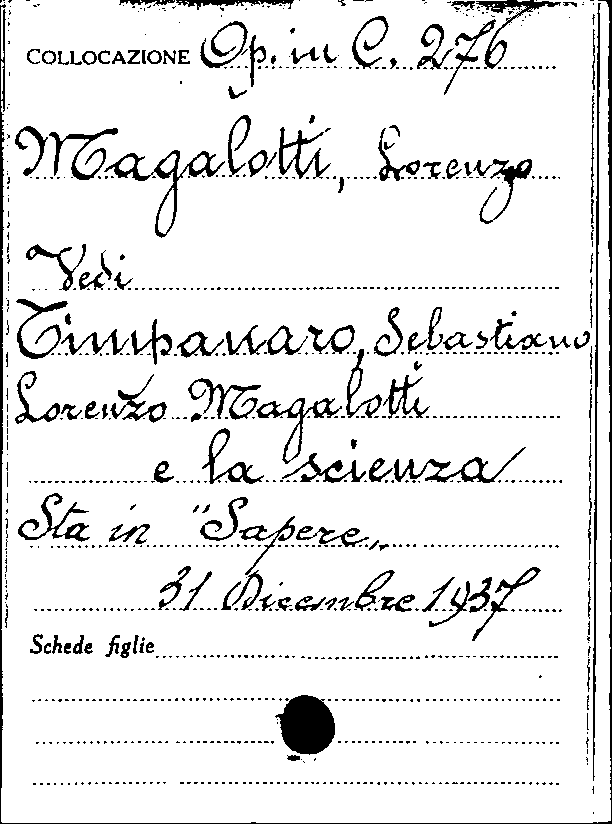 COLLOCAZIONE Op. in C. 276
Magalotti, Lorenzo
Vedi
Timpanaro, Sebastiano
Lorenzo Magalotti
e la scienza
Sta in "Sapere„
31 Dicembre 1937
Schede figlie